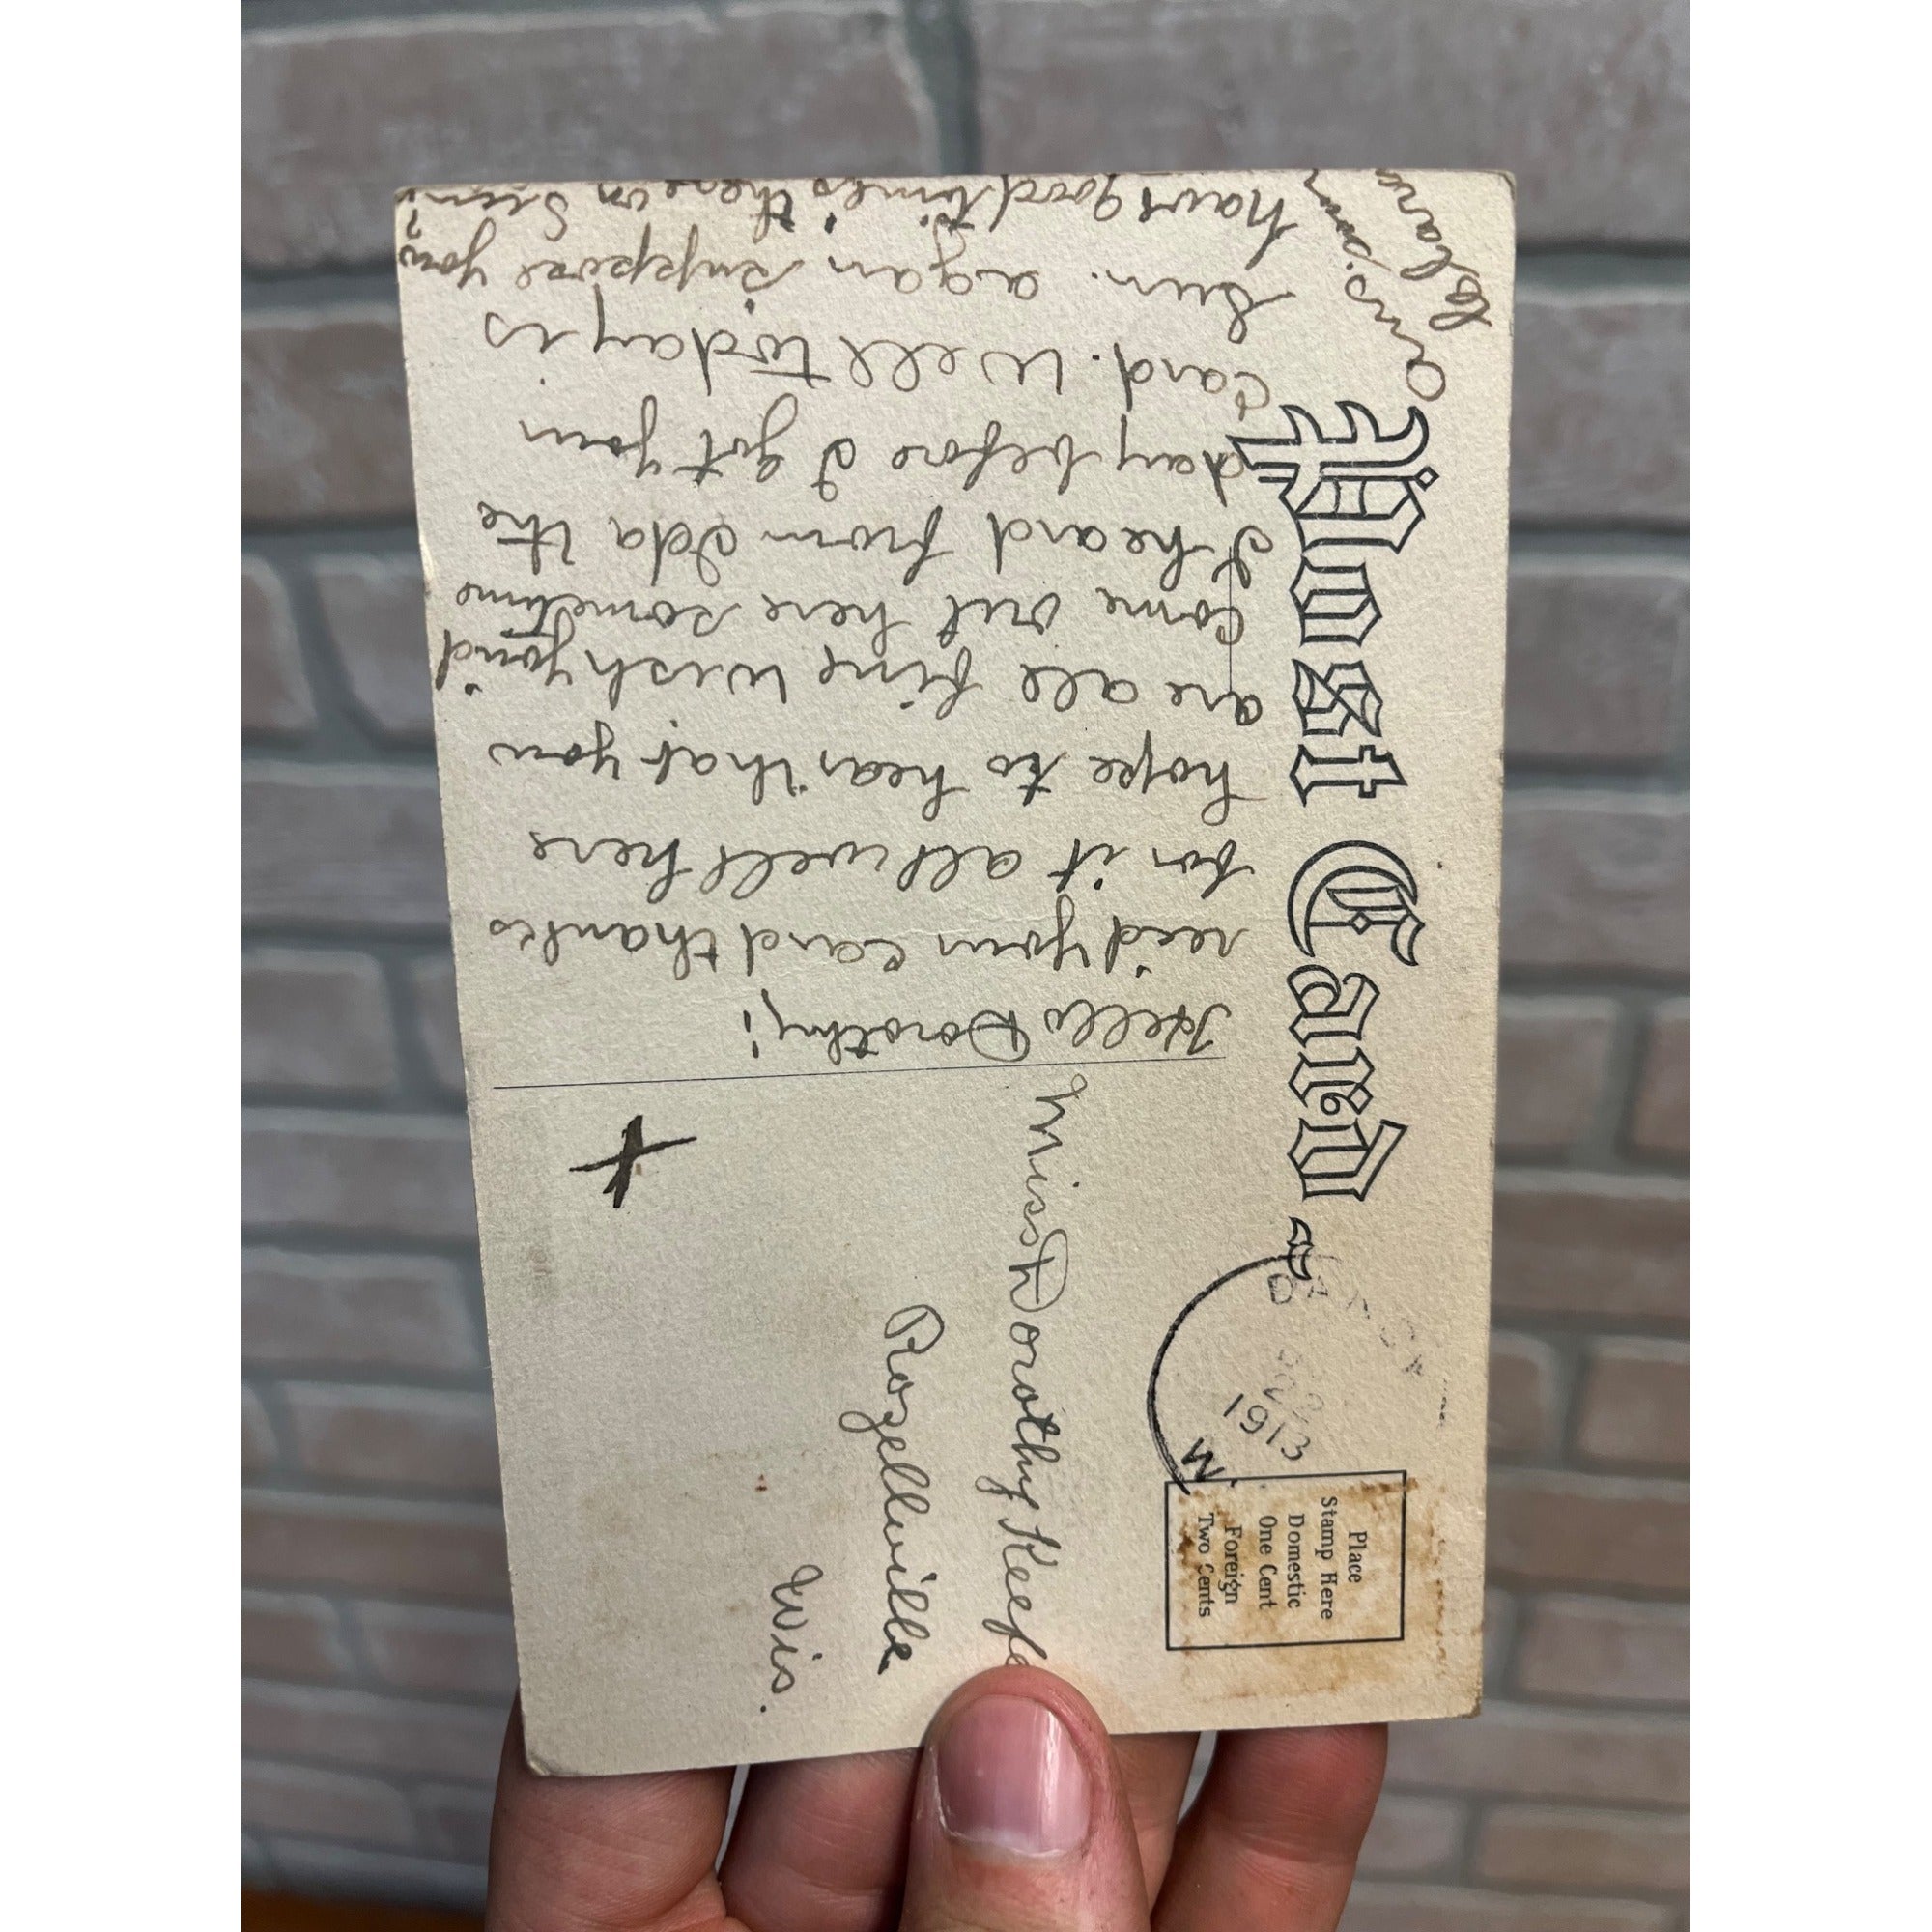 Post Card
Hello Dorothy;
rec'd your card thanks
for it all well here
hope to hear that you
are all fine wish you'd
come out here sometime
I heard from Ida the
day before I got your
card. Well today is
Sun. again suppose you
have good times there on Sun?
ans. soon
Clara
1913
M
Place
Stamp Here
Domestic
One Cent
Foreign
Two Cents
Miss Dorothy Keefe
Rozellville
Wis.